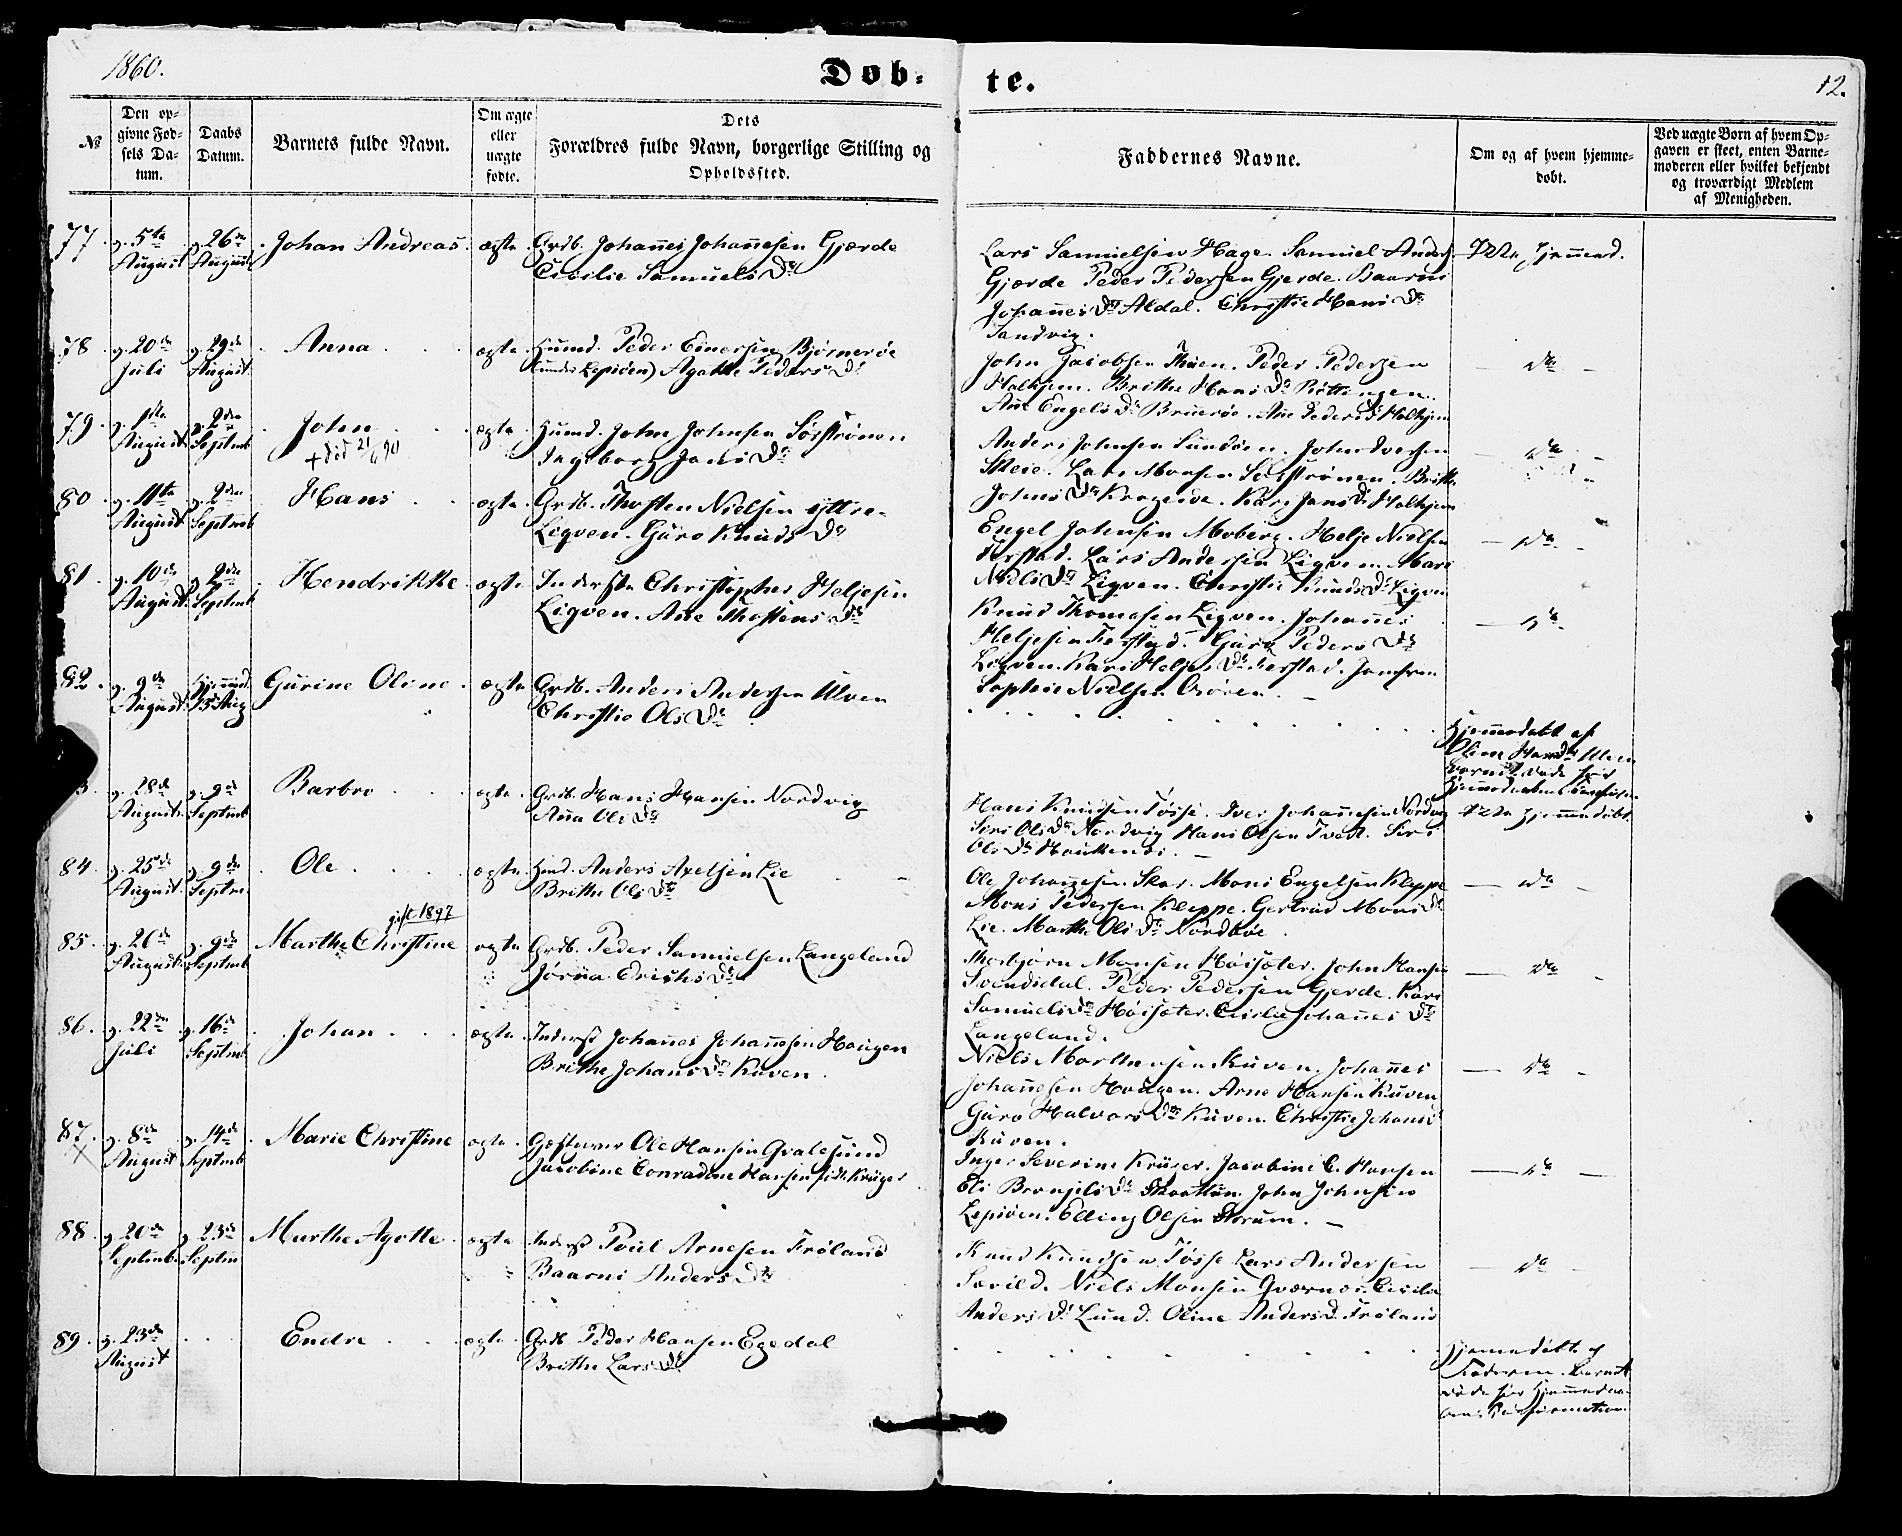 1860.
Døb-
te.
12.
№
Den op-
givne Fød-
sels Da-
tum.
Daabs
Datum.
Barnets fulde Navn.
Om ægte
eller
uægte
fødte.
Dets
Forældres fulde Navn, borgerlige Stilling og
Opholdssted.
Faddernes Navne.
Om og af hvem hjemme-
døbt.
Ved uægte Børn af hvem Op-
gaven er skeet, enten Barne-
moderen eller hvilket bekjendt
og troværdigt Medlem
af Menigheden.
77. 5te August 26de August Johan Andreas ægte Grdb. Johannes Johannesen Gjerde
Cicilie Samuels Dr
Lars Samuelsen Hage. Samuel Anders
Gjerde Peder Pedersen Gjerde. Baarni
Johannes Dr Aldal. Christie Hans Dr
Sandvig.
Ikke hjemmed.
78 20de Juli 29de August Anna ægte Huusd. Peder Einersen Bjørnerøe
Agathe Peders Dr
John Jacobsen Thuen. Peder Pedersen
Halhjem. Brithe Hans Dr Røttingen.
Ane Engels Dr Bruerøe. Ane Peders Dr Halhjem
do
79. 1ste August 2den Septemb. John ægte Huusd. John Johnsen Sørstrønen
+ død 21/6 90
Ingeborg Jans Dr
Anders Johnsen Sundøen. John Iversen
Steie. Lars Monsen Sørstrønen. Brithe
Johns Dr Krogeide. Kari Jans Dr Halhjem
do
80 11te August 2den Septemb. Hans ægte Grdb. Thosten Nielsen yttre
Ligven. Guro Knuds Dr
Engel Johnsen Moberg. Helje Nielsen
Ferstad. Lars Andersen Ligven. Mari
Niels Dr Ligven. Christie Knuds Dr Ligven
do
81. 10de August 2den Septemb. Hendrikke ægte Inderste Christopher Heljesen
Ligven. Ane Thostens Dr
Knud Thomasen Ligven. Johannes
Heljesen Ferstad. Guro Peders Dr
Ligven. Kari Heljes Dr Ferstad. Jomfru
Sophie Nielsen Osøren.
do
82. 9de August Hjemmed. 13 Aug Gurine Oline ægte Grdb. Anders Andersen Ulven
Christie Ols Dr
Hjemmedøbt af
Oline Hans Dr Ulven
Barnet døde før
28de August 9de Septemb Barbro ægte Grdb. Hans Hansen Nordvig
Anna Ols Dr
Hans Knudsen Tøsse. Iver Johannesen Nordvig
Siri Ols Dr Nordvig Hans Olsen Tveit. Siri
Ols Dr Haukenes.
Ikke hjemmedøbt
84. 25de August 9de Septem. Ole ægte Huusd. Anders Axelsen Lie
Brithe Ols Dr
Ole Johannesen Skar. Mons Engelsen Kleppe
Mons Pedersen Kleppe. Gertrud Mons Dr
Lie. Marthe Ols Dr Nordbøe.
do
gift 1897
85. 26de August 9de Septemb Marthe Christine ægte Grdb. Peder Samuelsen Langeland
Jørna Erichs Dr
Thorbjørn Monsen Høisæter. John Hansen
Svendsdal. Peder Pedersen Gjerde. Kari
Samuels Dr Høisæter. Cicilie Johannes Dr
Langeland.
do
86. 22de Juli 16de Septemb Johan ægte Inderst Johannes Johannesen Hougen
Brithe Johans Dr Kuven.
Niels Mortensen Kuven. Johannes
Johannesen Hougen. Arne Hansen Kuven
Guro Halvors Dr Kuven. Christie Johans Dr
Kuven.
do
87. 8de August 14de Septemb Marie Christine ægte Gjestgiver Ole Hansen Gvalesund
Jacobine Conradine Hansen født Krüger
Inger Severine Krüger. Jacobine C. Hansen
Eli Brynjels Dr Skaathun. John Johnsen
Lepsøen. Elling Olsen Skrum.
do
88. 20de Septemb. 23de Septem Marthe Agatte ægte Inderst Poul Arnesen Frøland
Baarni Anders Dr
Knud Knudsen Tøsse Lars Andersen
Særild. Niels Monsen Qværnes. Cicilie
Anders Dr Lund. Oline Anders Dr Frøland
do
89. 23de August Endre ægte Grdb Peder Hansen Egedal
Brithe Lars Dr
Hjemmedøbt af
Faderen. Barnet
døde før Hjemmedaa-
bens Confirmation.